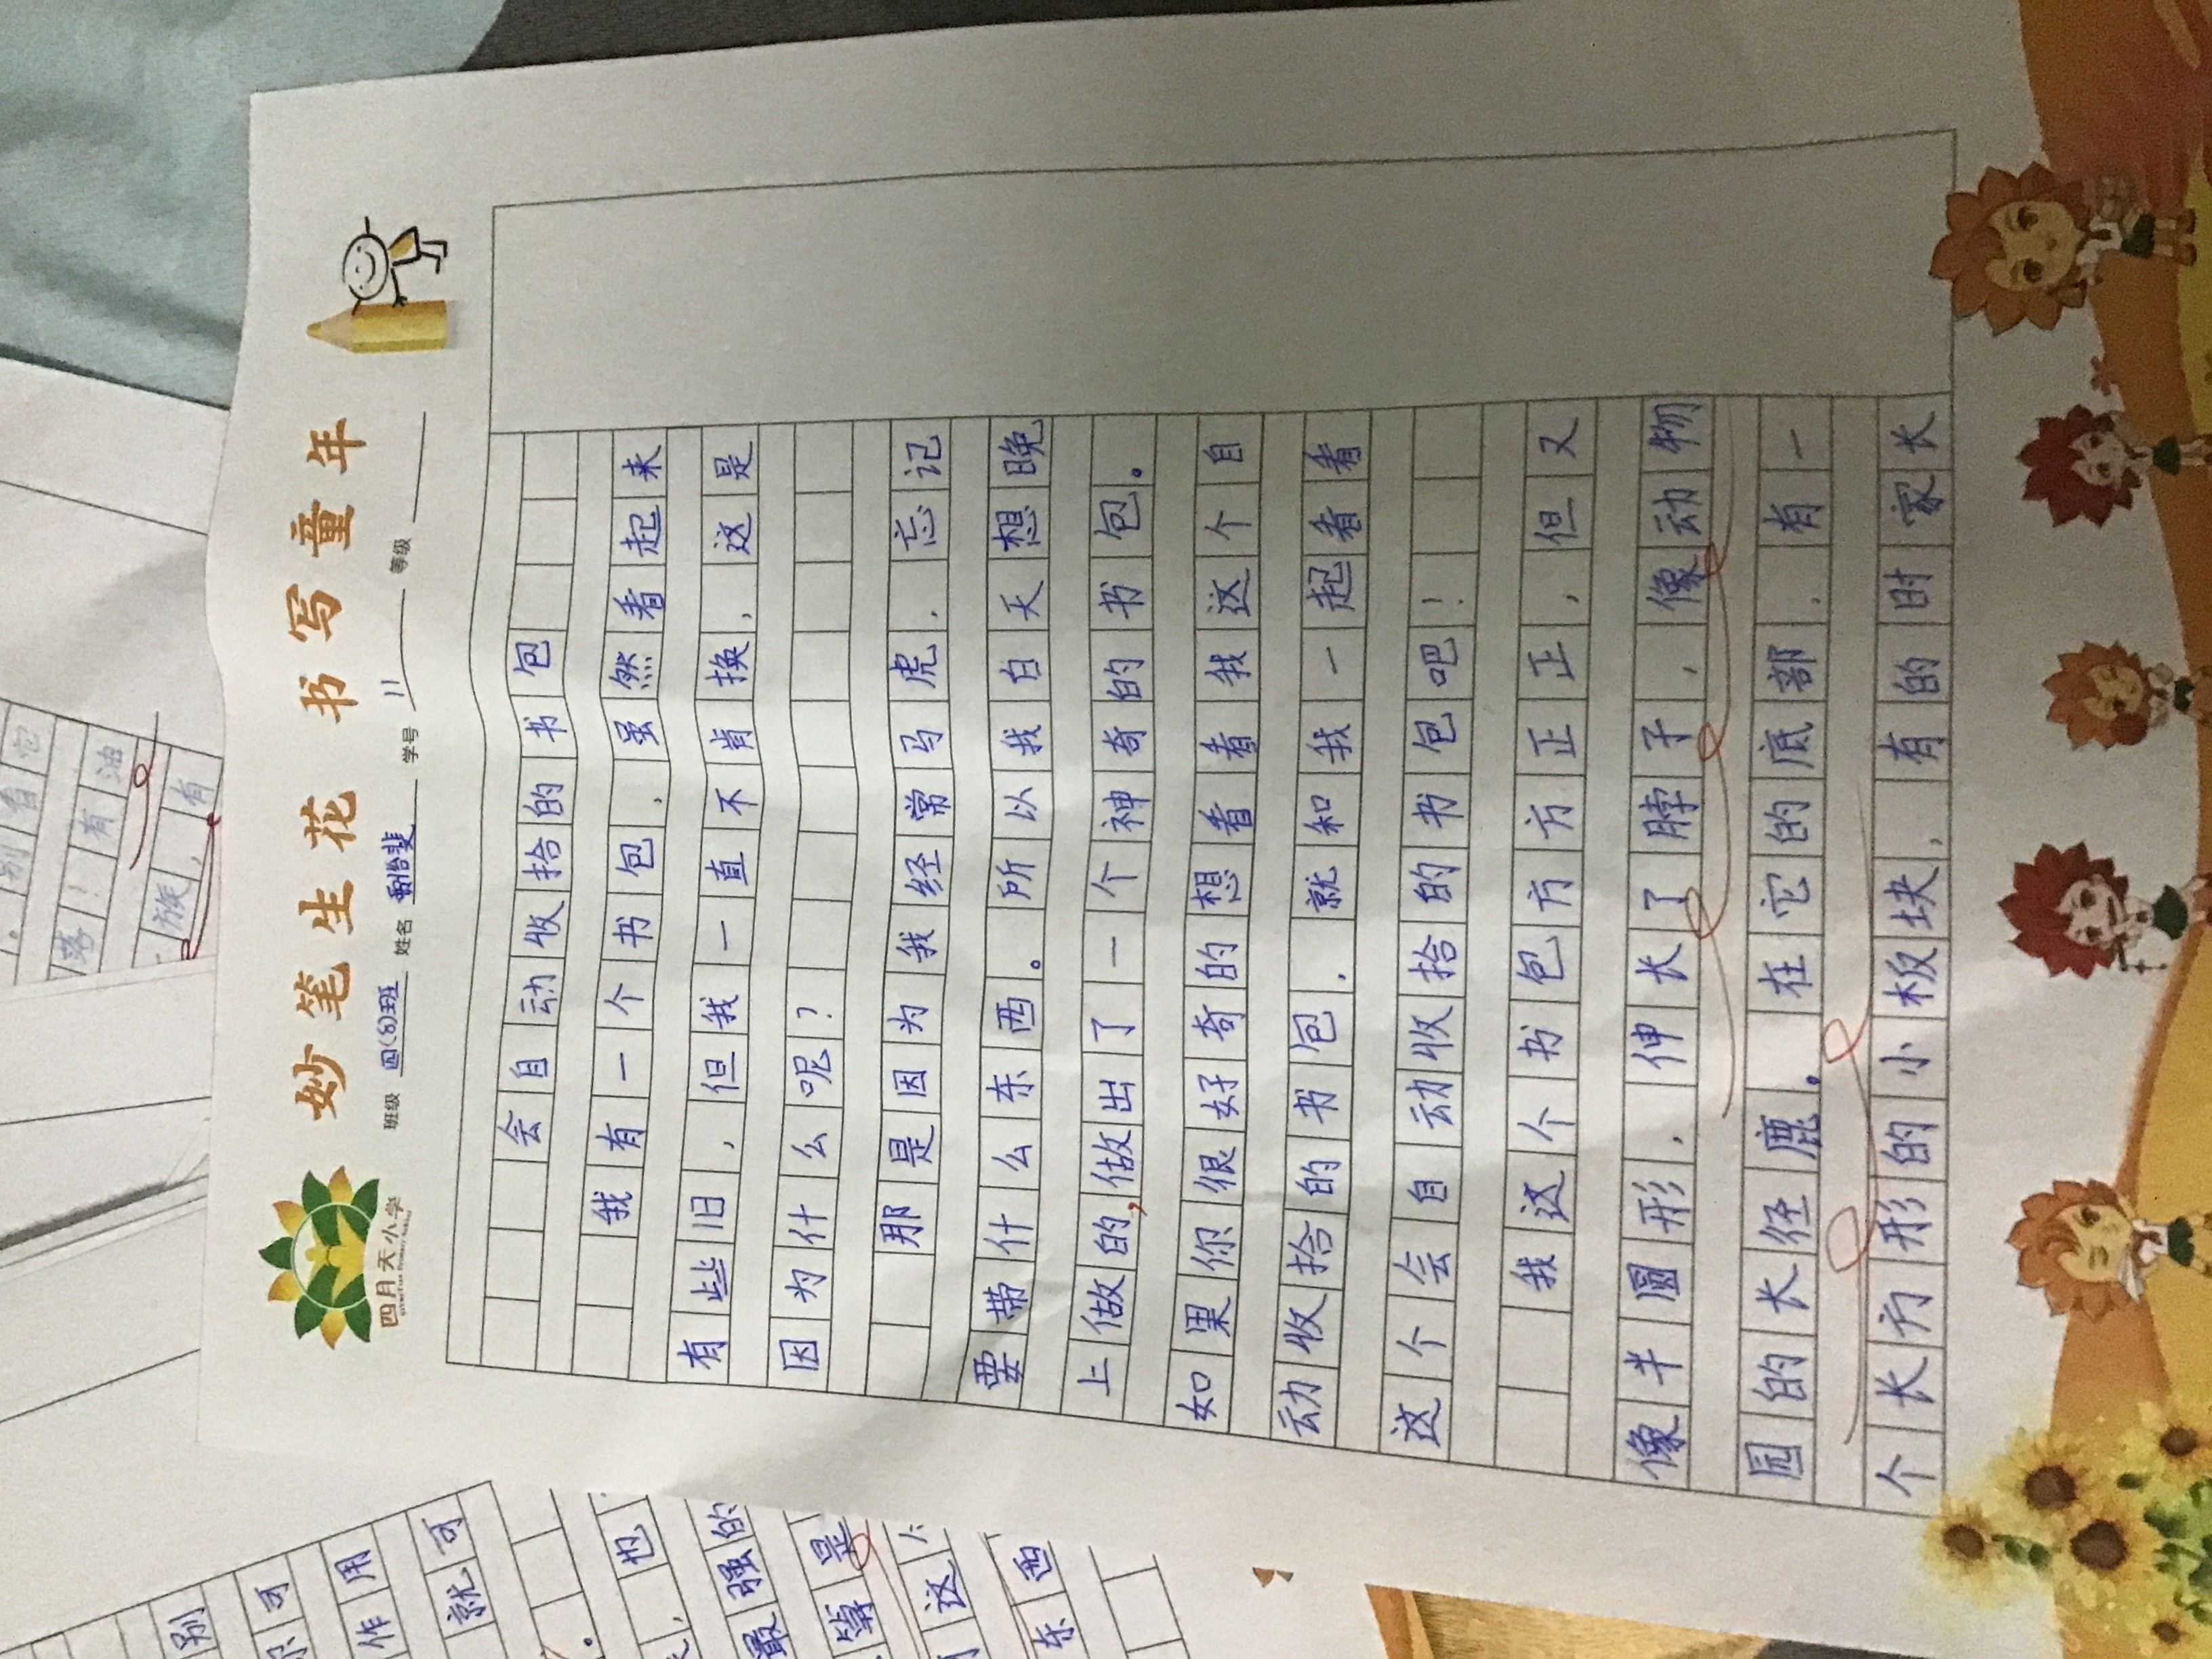 妙笔生花 书写童年
四月天小学
班级 四(8)班 姓名 学号 11 等级
会自动收拾的书包
我有一个书包，虽然看起来
有些旧，但我一直不肯换，这是
因为什么呢？
那是因为我经常马虎，忘记
要带什么东西。所以我白天想晚
上做的，做出了一个神奇的书包。
如果你很好奇的想看看我这个自
动收拾的书包，就和我一起看看
这个会自动收拾的书包吧！
我这个书包方方正正，但又
像半圆形，伸长了脖子，像动物
园的长径鹿。在它的底部，有一
个长方形的小板块，有的时家长
别看它
落！有油
族，有
别
可
作用
就可
也
最强的
是
这
东西